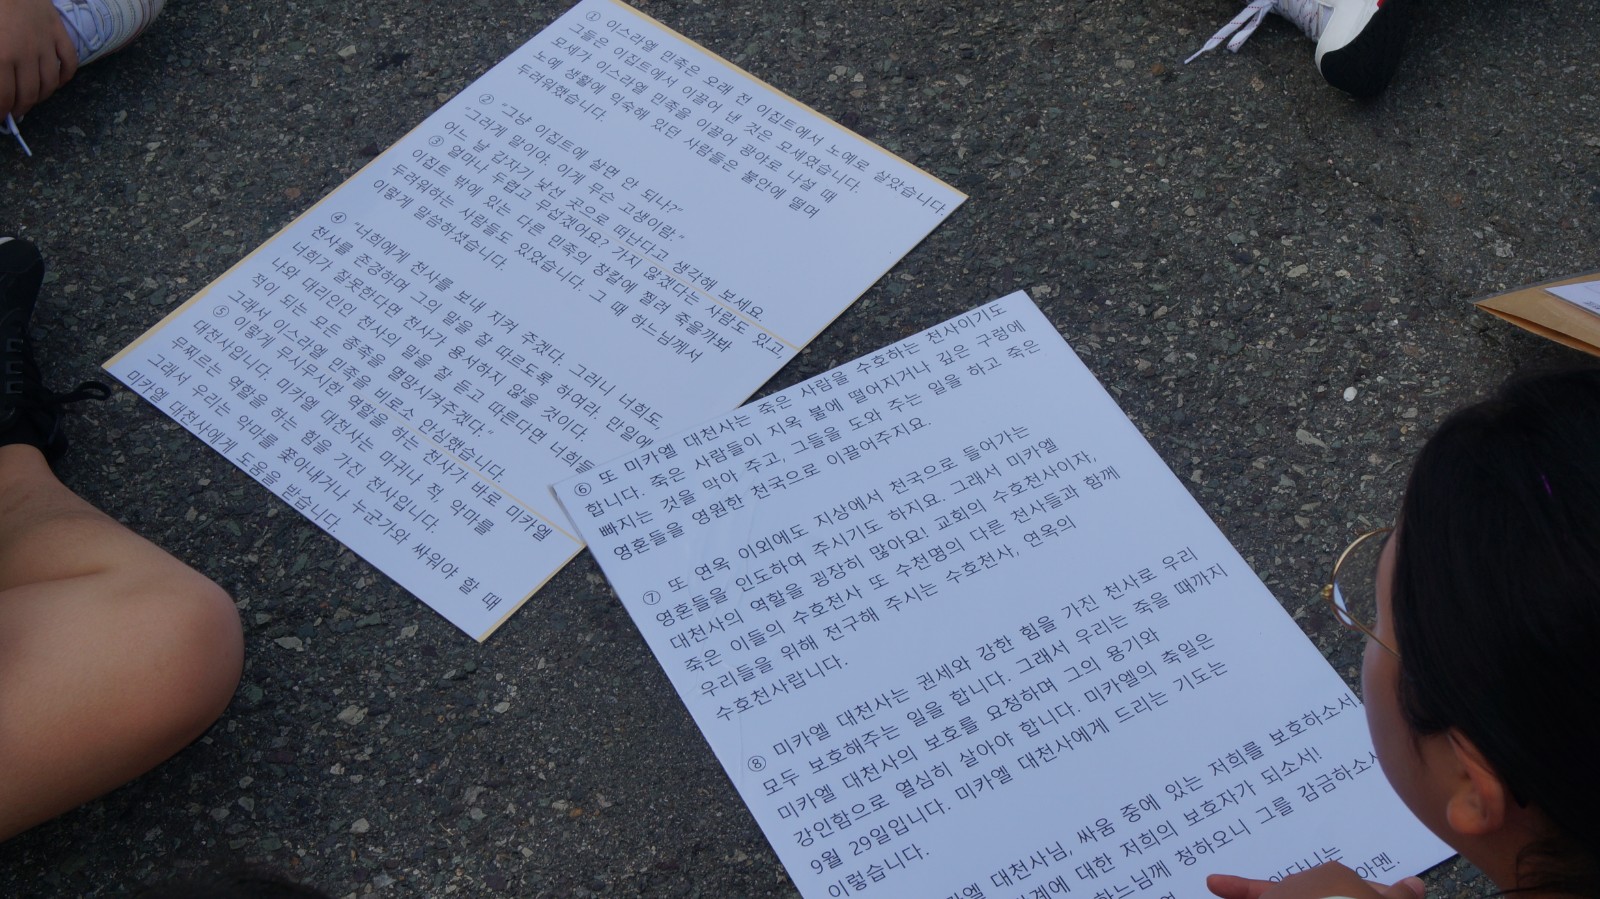 ① 이스라엘 민족은 오래 전 이집트에서 노예로 살았습니다.
그들은 이집트에서 이끌어 낸 것은 모세였습니다.
모세가 이스라엘 민족을 이끌어 광야로 나설 때
노예 생활에 익숙해 있던 사람들은 불안에 떨며
두려워했습니다.
② "그냥 이집트에 살면 안 되나?"
"그러게 말이야. 이게 무슨 고생이람."
어느 날 갑자기 낯선 곳으로 떠난다고 생각해 보세요.
③ 얼마나 두렵고 무섭겠어요? 가지 않겠다는 사람도 있고,
이집트 밖에 있는 다른 민족의 창칼에 찔려 죽을까봐
두려워하는 사람들도 있었습니다. 그 때 하느님께서
이렇게 말씀하셨습니다.
④ "너희에게 천사를 보내 지켜 주겠다. 그러니 너희도,
천사를 존경하며 그의 말을 잘 따르도록 하여라. 만일에
너희가 잘못한다면 천사가 용서하지 않을 것이다.
나와 대리인인 천사의 말을 잘 듣고 따른다면 너희들
적이 되는 모든 종족을 멸망시켜주겠다."
그래서 이스라엘 민족을 비로소 안심했습니다.
⑤ 이렇게 무시무시한 역할을 하는 천사가 바로 미카엘
대천사입니다. 미카엘 대천사는 마귀나 적, 악마를
무찌르는 역할을 하는 힘을 가진 천사입니다.
그래서 우리는 악마를 쫓아내거나 누군가와 싸워야 할 때
미카엘 대천사에게 도움을 받습니다.
⑥ 또 미카엘 대천사는 죽은 사람을 수호하는 천사이기도
합니다. 죽은 사람들이 지옥 불에 떨어지거나 깊은 구렁에
빠지는 것을 막아 주고, 그들을 도와 주는 일을 하고 죽은
영혼들을 영원한 천국으로 이끌어주지요.
⑦ 또 연옥 이외에도 지상에서 천국으로 들어가는
영혼들을 인도하여 주시기도 하지요. 그래서 미카엘
대천사의 역할을 굉장히 많아요! 교회의 수호천사이자,
죽은 이들의 수호천사 또 수천명의 다른 천사들과 함께
우리들을 위해 전구해 주시는 수호천사, 연옥의
수호천사랍니다.
⑧ 미카엘 대천사는 권세와 강한 힘을 가진 천사로 우리
모두 보호해주는 일을 합니다. 그래서 우리는 죽을 때까지
미카엘 대천사의 보호를 요청하며 그의 용기와
강인함으로 열심히 살아야 합니다. 미카엘의 축일은
9월 29일입니다. 미카엘 대천사에게 드리는 기도는
이렇습니다.
대천사님, 싸움 중에 있는 저희를 보호하소서.
대한 저희의 보호자가 되소서!
하느님께 청하오니 그를 감금하소서
아멘.